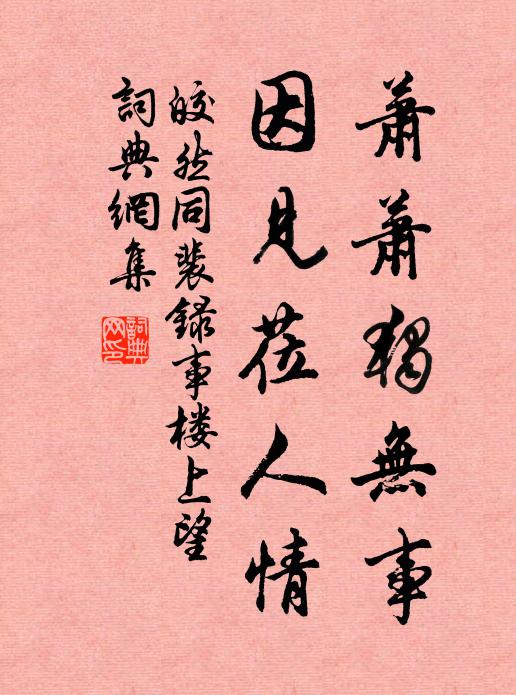 蕭蕭獨無事
因見莅人情
皎然同裴錄事楼上望
詞典網集
詞典网印